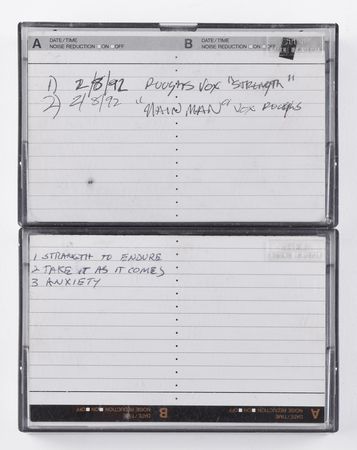 A DATE/TIME
NOISE REDUCTION ON OFF
B DATE/TIME
NOISE REDUCTION ON OFF
1) 2/8/92 ROUGHS VOX "STRENGTH"
2) 2/8/92 "MAIN MAN" VOX ROUGHS
1 STRENGTH TO ENDURE
2 TAKE IT AS IT COMES
3 ANXIETY
A DATE/TIME
NOISE REDUCTION ON OFF
B DATE/TIME
NOISE REDUCTION ON OFF